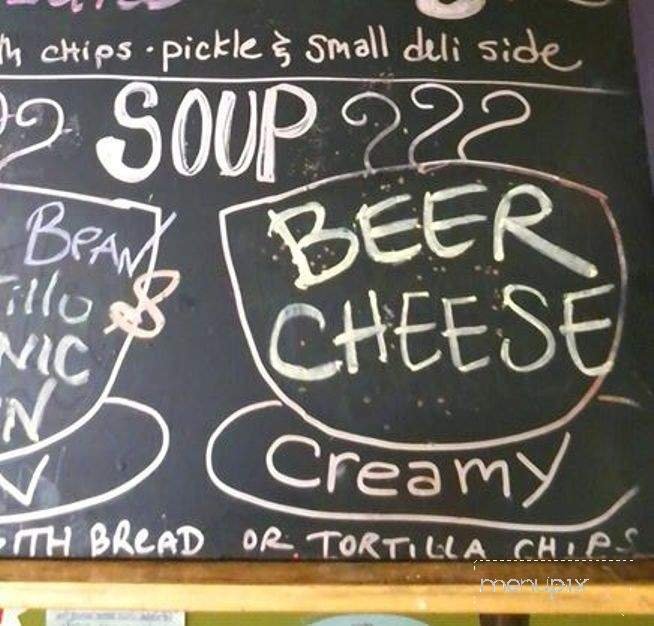 chips · pickle & small deli side
SOUP ???
BEAN
BEER
CHEESE
Creamy
BREAD OR TORTILLA CHIPS
menupix